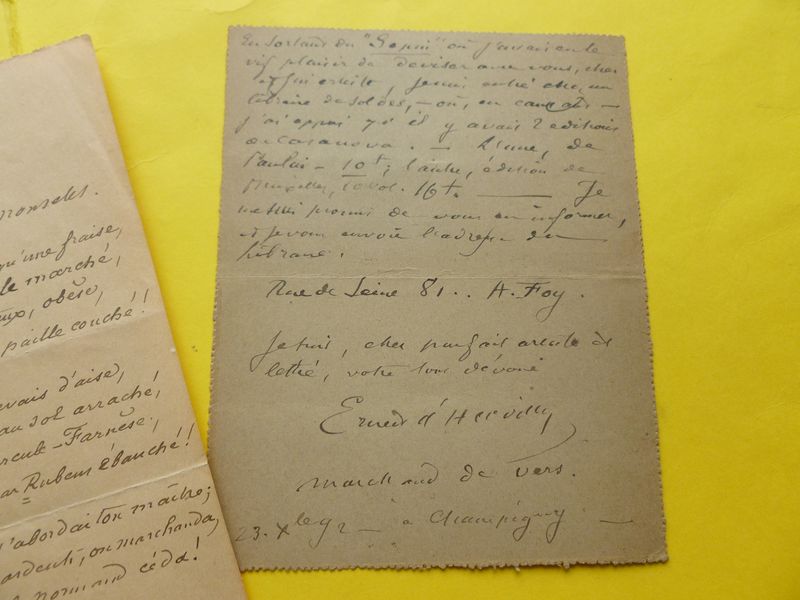 monselet.
qu'une fraise,
le marché,
obèse,
paille couché!!
d'aise,
au sol arraché,
Farnèse,
par Rubens Ébauché!!
t'abordait on maître;
ardent, on marchanda,
normand céda!
En sortant du "Sapin" où j'avais eu le
vif plaisir de deviser avec vous, cher
et fin je suis entré chez un
libraire de soldes, — où, en causant —
j'ai appris qu'il y avait 2 éditions
de Casanova. — L'une, de
Paulin — 10f; l'autre, édition de
Bruxelles, 6 vol. 16f. — Je
me suis promis de vous en informer,
et je vous envoie l'adresse du
libraire.
Rue de Seine 81.. A. Foy.
Je suis, cher parfait artiste et
lettré, votre tout dévoué
Ernest d'Hervilly
marchand de vers.
23. à Champigny —